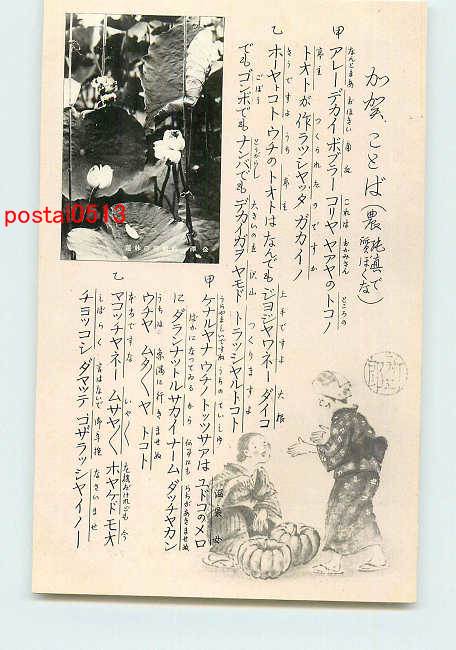 加賀、ことば(農民純真で質ぼくな)
なんとまあ おほきい 南瓜 これは おかみさん ところの
甲 アレーデカイ ボブラー コリヤ ヤアヤのトコノ
亭主 つくられたのですか
トオトが 作ラッシヤッタ ガカイノ
さうですよ うち 亭主 上手ですよ 大根
乙 ホーヤ、コト ウチのトオトはなんでも ジヨジヤワネー ダイコ
ごぼう とうがらし 大きいのを 沢山 つくりますよ
でも ゴンボでも ナンバでも デカイガヲ ヤモド トラッシヤルトコト
うらやましいですね うちのていしゆ 温泉 女
甲 ケナルヤナ ウチノ トッツサアは ユドコのメロ
ばかになつてゐるから
に ダランナツトル サカイ ナーム ダッチヤカン
うちは 楽湯に行きませぬ
ウチヤ ムタ〱ヤ トコト
本当ですな いやく 今
乙 マコッチヤネー ムサヤ〱 ホヤケドモ オ
しばらく 言はないで 御辛抱 なさいませ
チョッコシ ダマッテ ゴザラッシヤイノー
postal0513